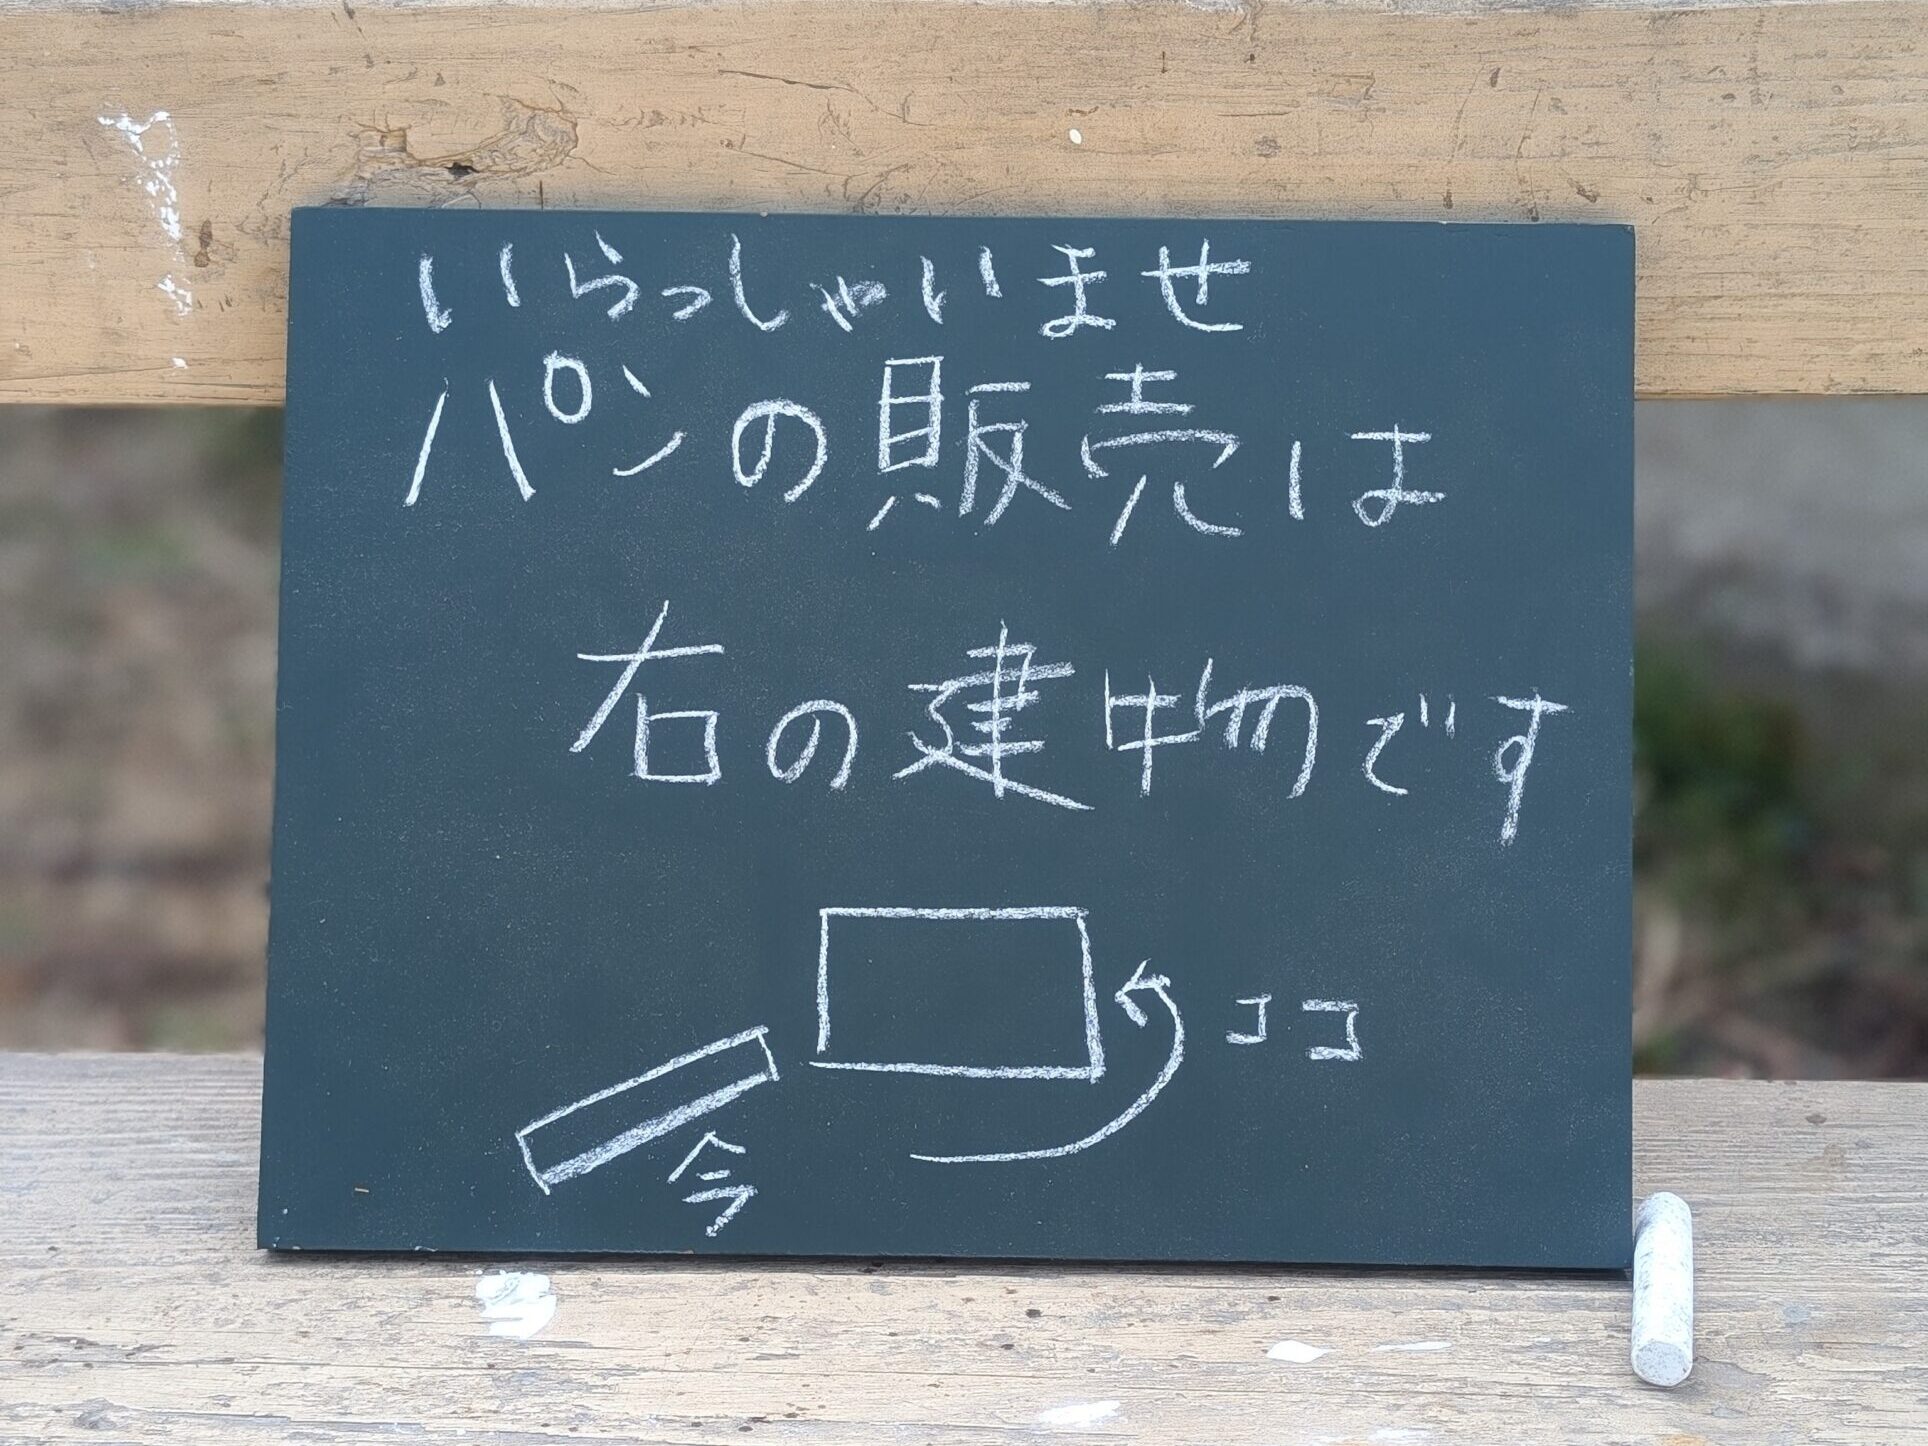 いらっしゃいませ
パンの販売は
右の建物です
ココ
今